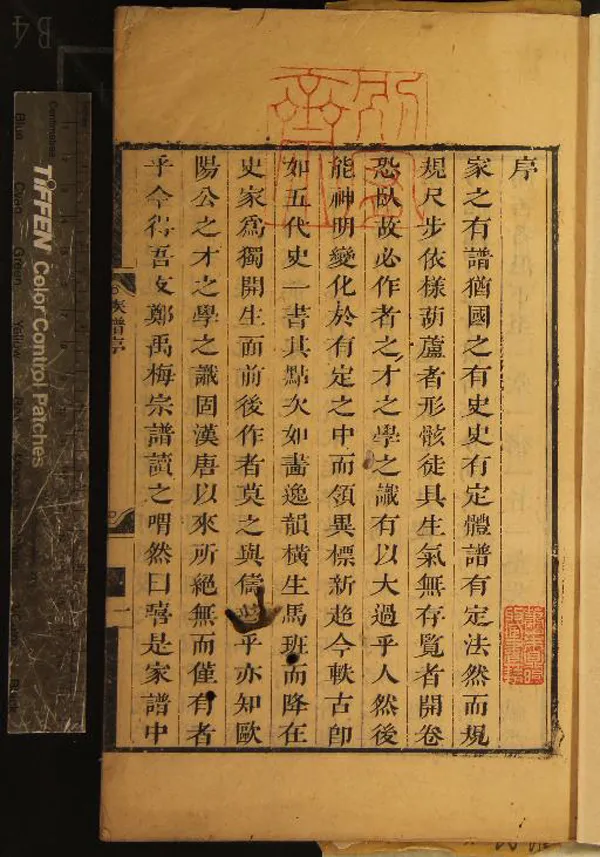 序
家之有譜猶國之有史史有定體譜有定法然而規
規尺步依樣葫蘆者形骸徒具生氣無存覽者開卷
恐臥故必作者之才之學之識有以大過乎人然後
能神明變化於有定之中而領異標新超今軼古卽
如五代史一書其點次如畵逸韻橫生馬班而降在
史家爲獨開生面前後作者莫之與儔乎亦知歐
陽公之才之學之識固漢唐以來所絕無而僅有者
乎今得吾友鄭禹梅宗譜讀之喟然曰嘻是家譜中
族譜序
一
TIFFEN Color Control Patches
Blue Cyan Green Yellow
Centimetres